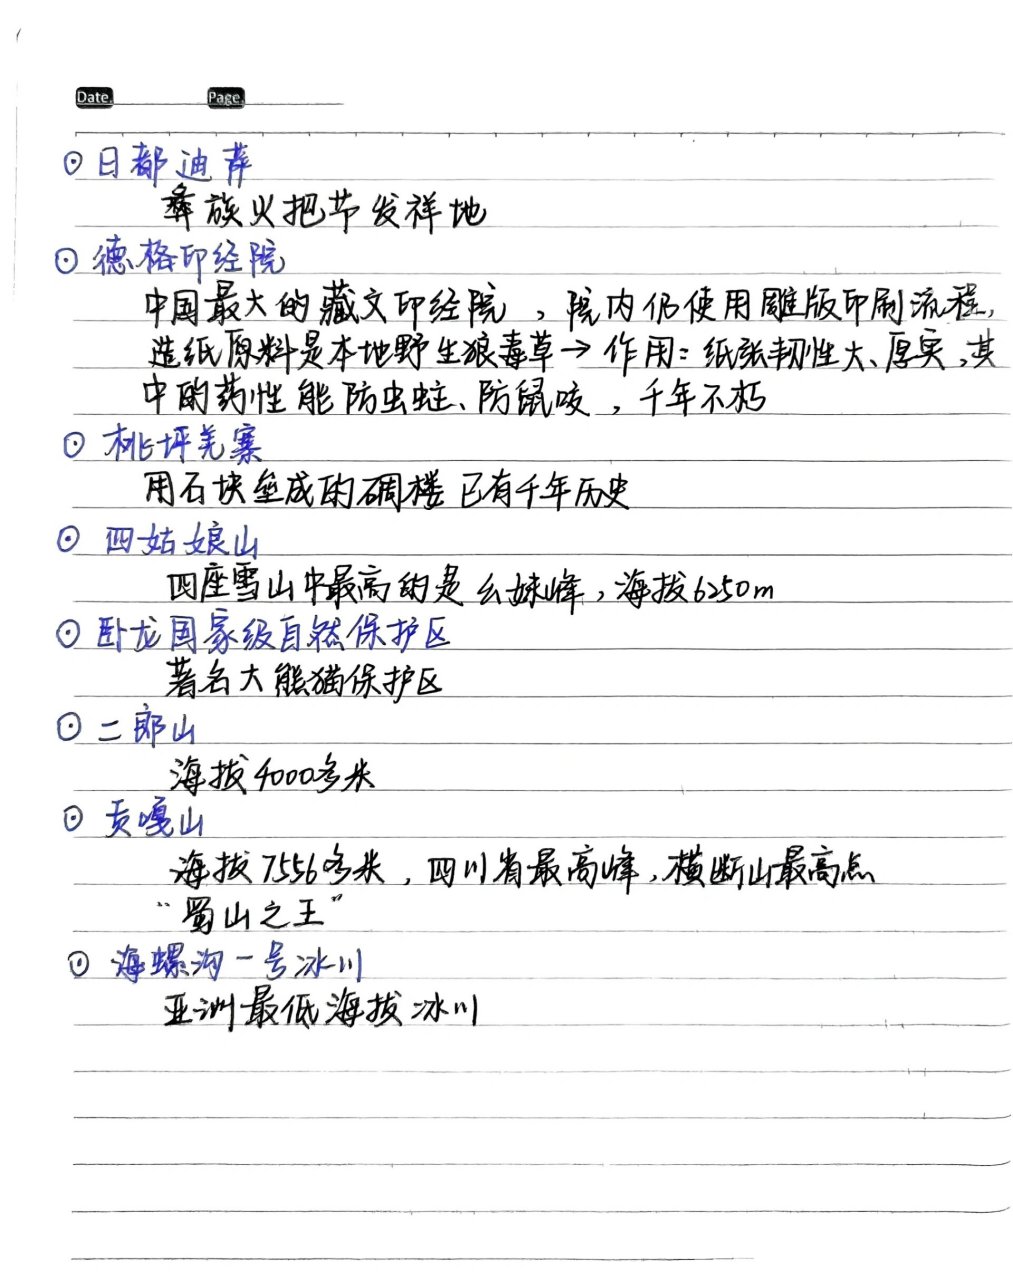 Date.
Page.
⊙ 日都迪萨
彝族火把节发祥地
⊙ 德格印经院
中国最大的藏文印经院，院内仍使用雕版印刷流程，
造纸原料是本地野生狼毒草→作用：纸张韧性大、厚实，其
中的药性能防虫蛀、防鼠咬，千年不朽
⊙ 桃坪羌寨
用石块垒成的碉楼已有千年历史
⊙ 四姑娘山
四座雪山中最高的是幺妹峰，海拔6250m
⊙ 卧龙国家级自然保护区
著名大熊猫保护区
⊙ 二郎山
海拔4000多米
⊙ 贡嘎山
海拔7556多米，四川省最高峰，横断山最高点
“蜀山之王”
⊙ 海螺沟一号冰川
亚洲最低海拔冰川